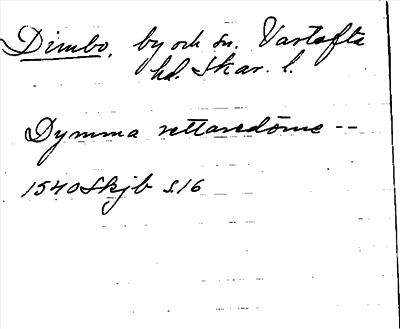 Dimbo, by och sn. Vartofta
hd. Skar. l.
Dymma rettaredöme --
1540 Skjb s.16